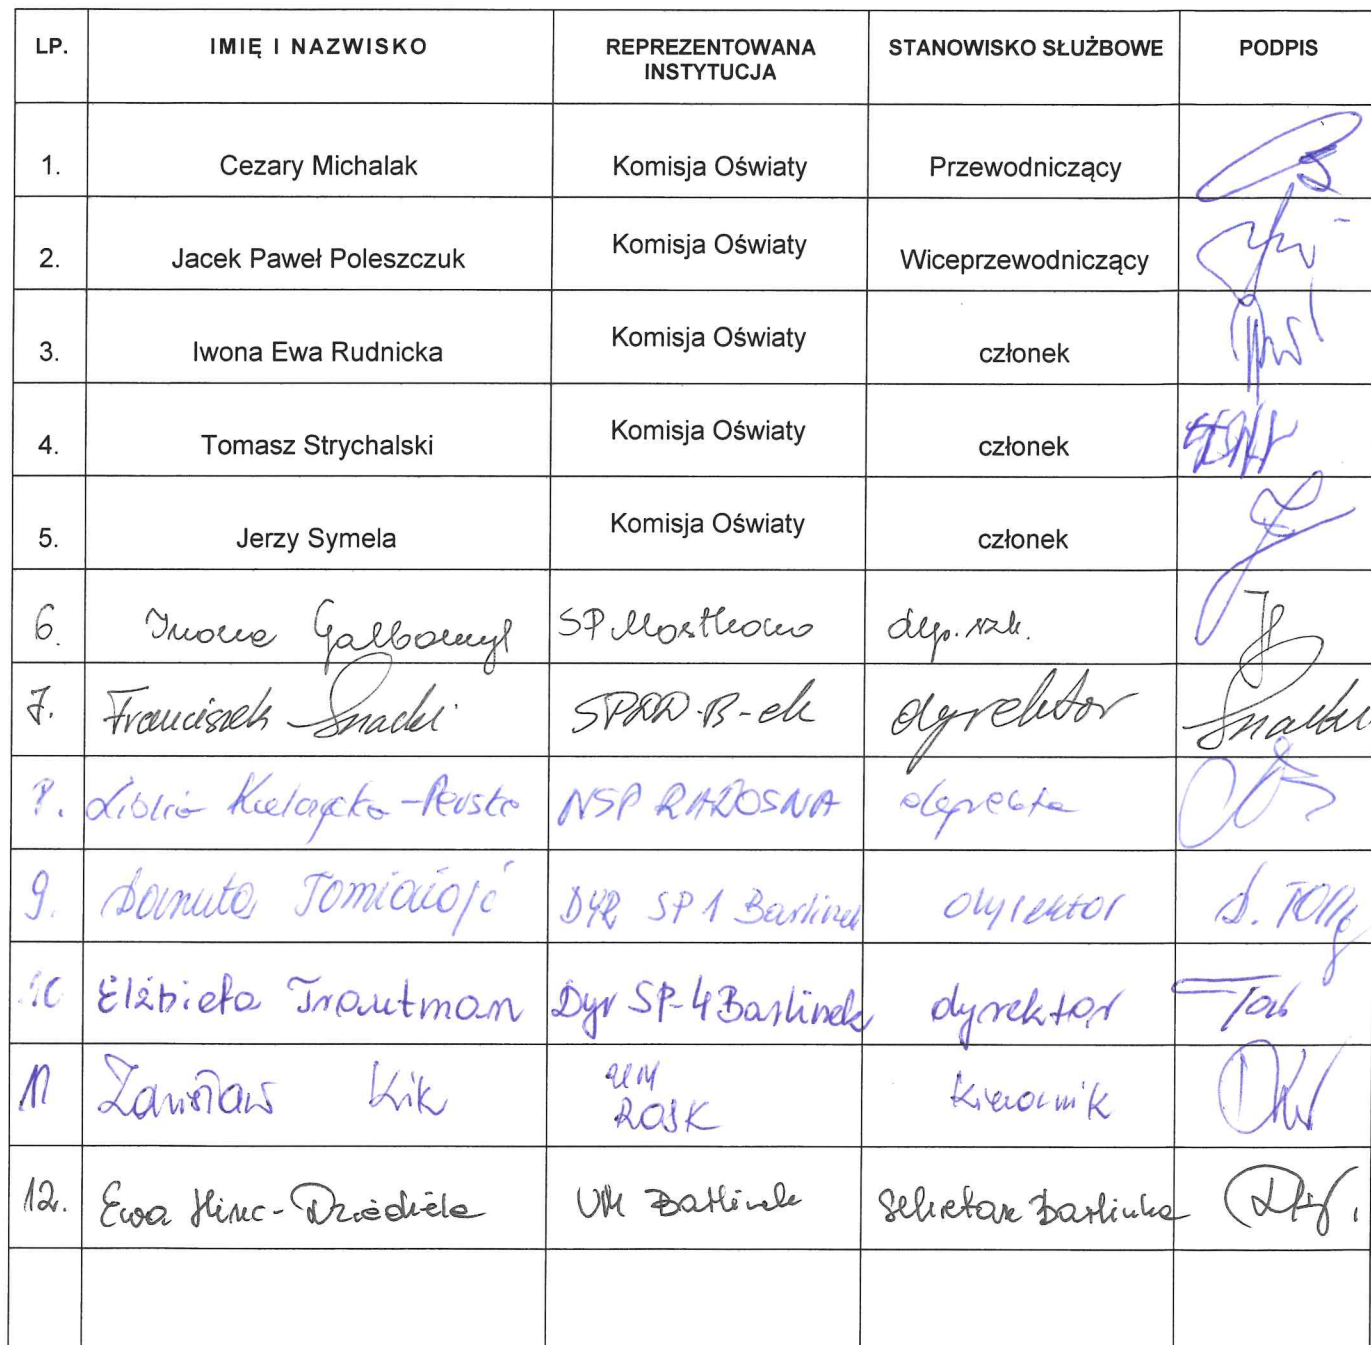 LP. IMIĘ I NAZWISKO REPREZENTOWANA INSTYTUCJA STANOWISKO SŁUŻBOWE PODPIS
1. Cezary Michalak Komisja Oświaty Przewodniczący
2. Jacek Paweł Poleszczuk Komisja Oświaty Wiceprzewodniczący
3. Iwona Ewa Rudnicka Komisja Oświaty członek
4. Tomasz Strychalski Komisja Oświaty członek
5. Jerzy Symela Komisja Oświaty członek
6. Iwona SP Mostkowo
7. Franciszek dyrektor
NSP RADOSNA
9. Danuta DYR SP 1 Barlinek dyrektor
10 Elżbieta Trautman Dyr SP-4 Barlinek dyrektor
11 Kik UM Kierownik
12. Ewa UM Barlinek Sekretarz Barlinka